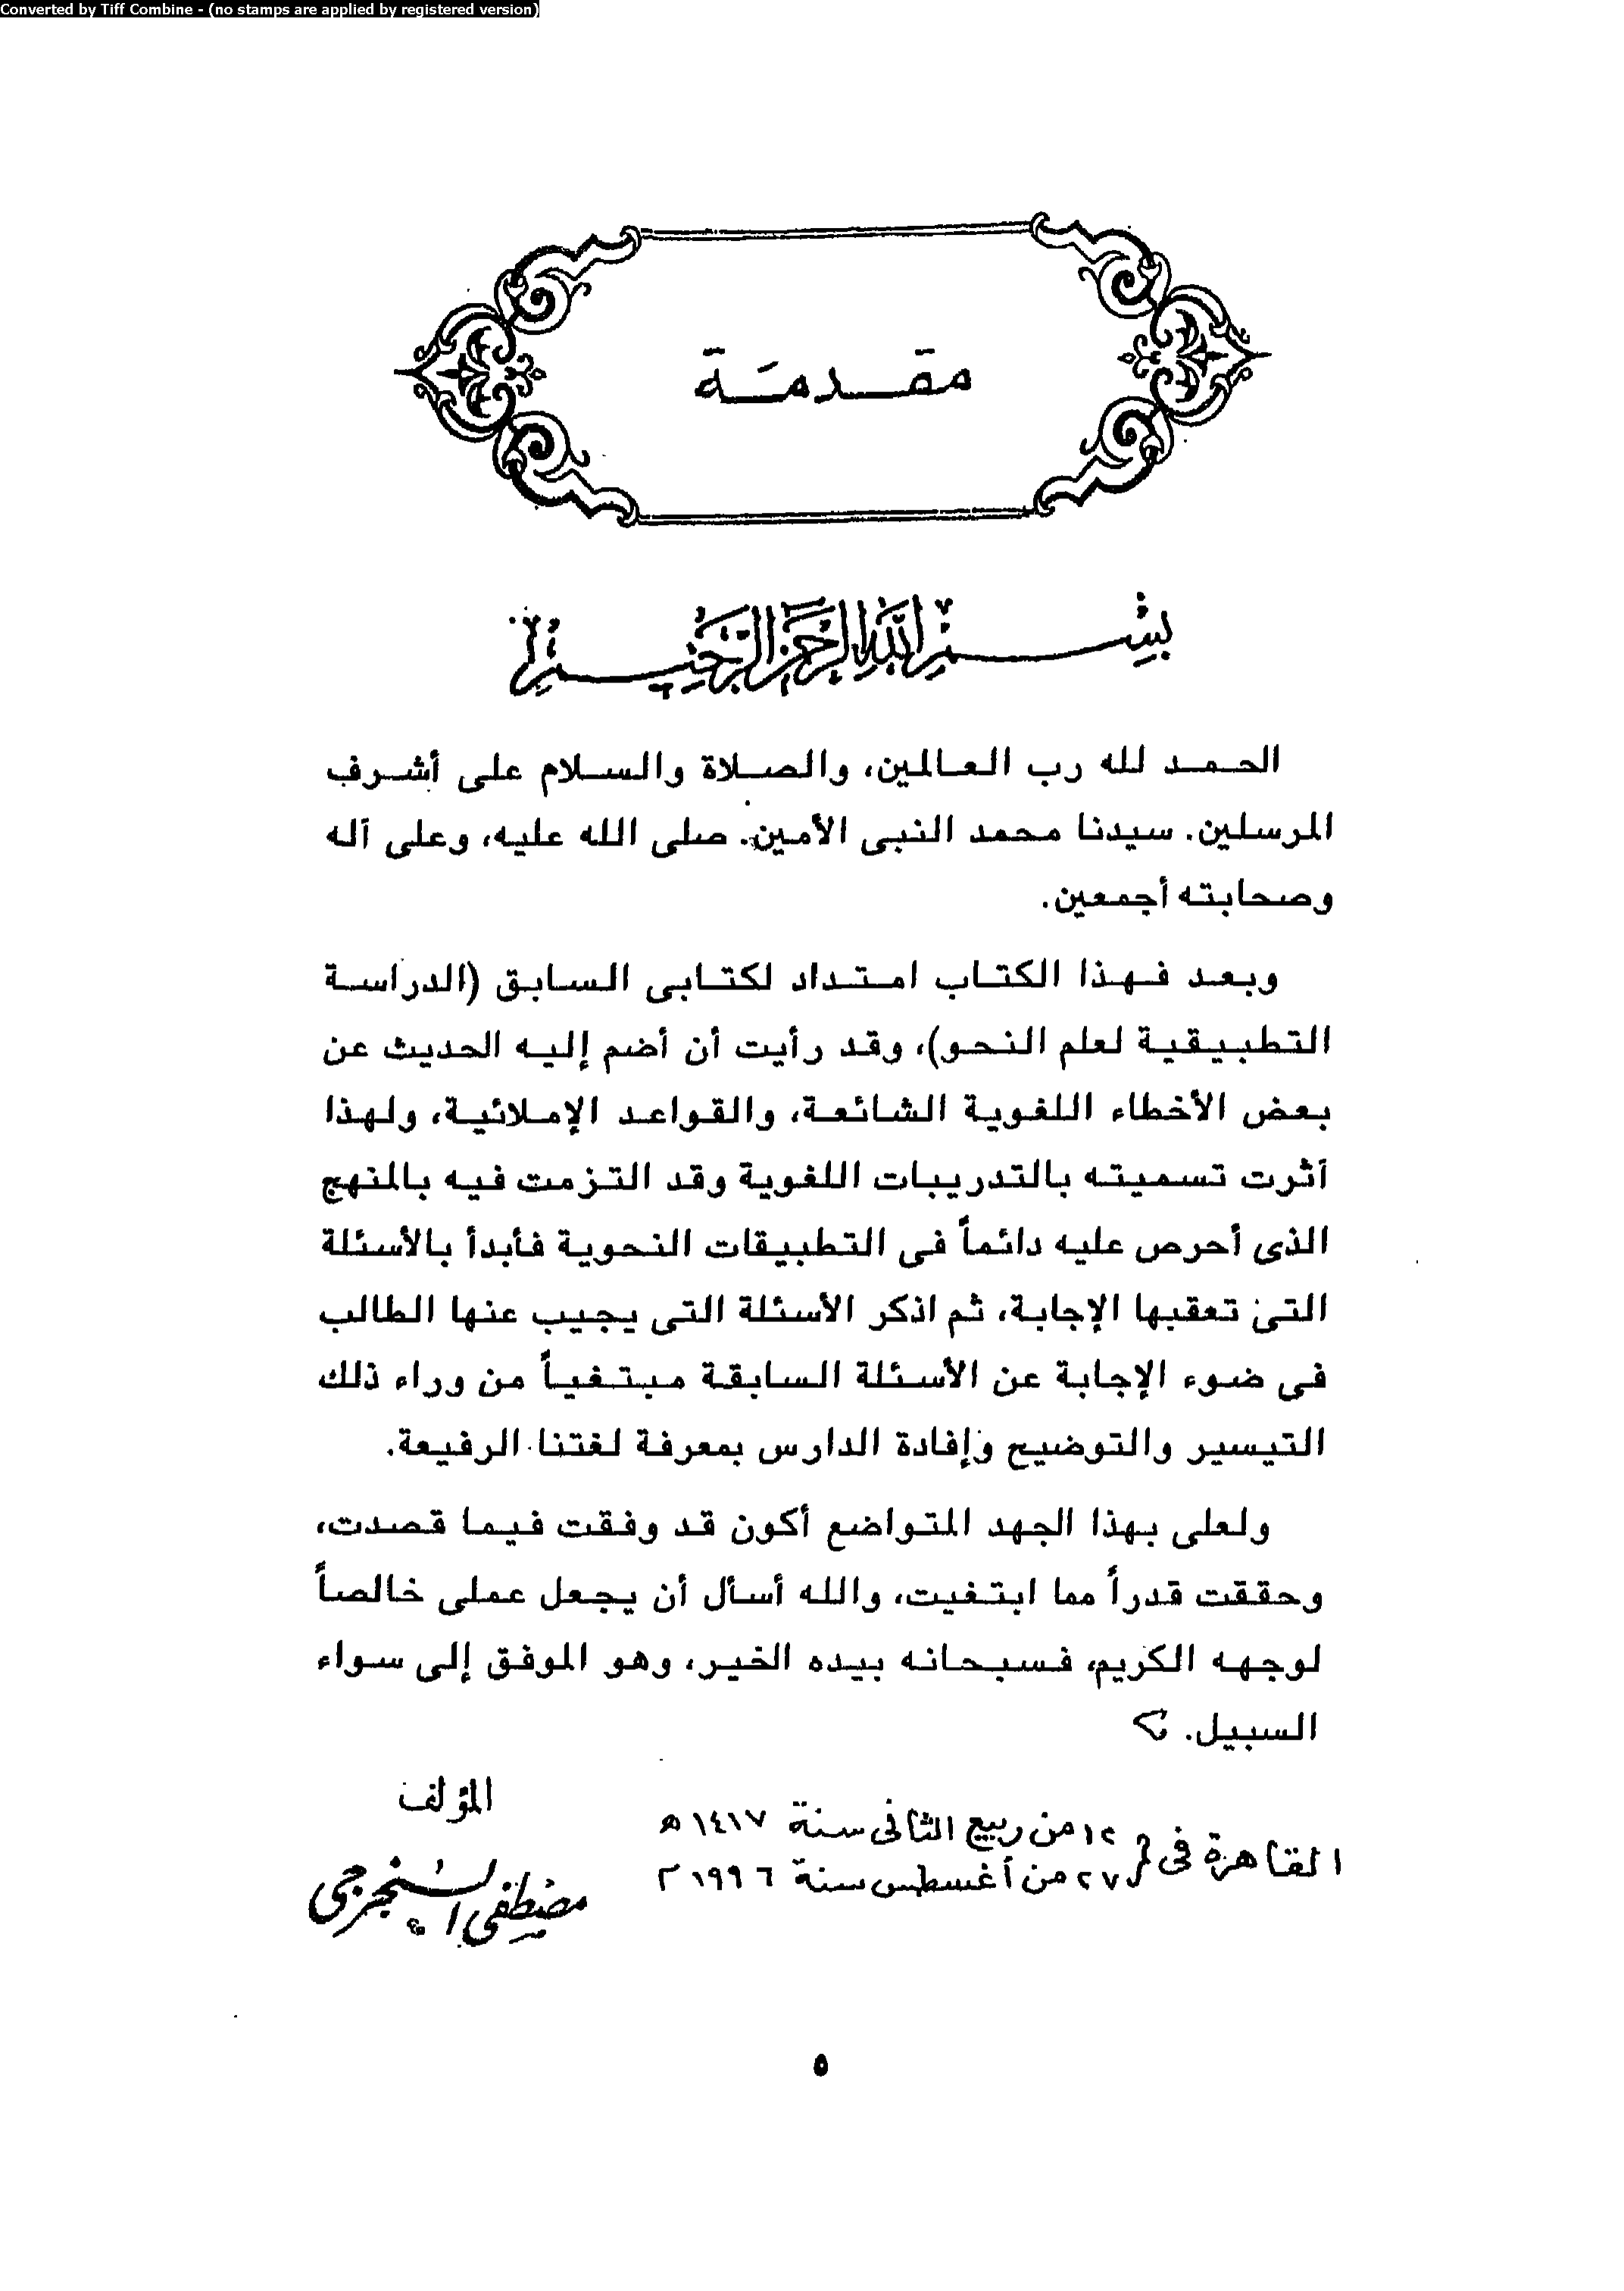 Converted by Tiff Combine - (no stamps are applied by registered version)
مقدمة
بسم الله الرحمن الرحيم
الحمد لله رب العالمين، والصلاة والسلام على أشرف
المرسلين. سيدنا محمد النبى الأمين. صلى الله عليه، وعلى آله
وصحابته أجمعين.
وبعد فهذا الكتاب امتداد لكتابى السابق (الدراسة
التطبيقية لعلم النحو)، وقد رأيت أن أضم إليه الحديث عن
بعض الأخطاء اللغوية الشائعة، والقواعد الإملائية، ولهذا
آثرت تسميته بالتدريبات اللغوية وقد التزمت فيه بالمنهج
الذى أحرص عليه دائماً فى التطبيقات النحوية فأبدأ بالأسئلة
التى تعقبها الإجابة، ثم اذكر الأسئلة التى يجيب عنها الطالب
فى ضوء الإجابة عن الأسئلة السابقة مبتغياً من وراء ذلك
التيسير والتوضيح وإفادة الدارس بمعرفة لغتنا الرفيعة.
ولعلى بهذا الجهد المتواضع أكون قد وفقت فيما قصدت،
وحققت قدراً مما ابتغيت، والله أسأل أن يجعل عملى خالصاً
لوجهه الكريم، فسبحانه بيده الخير، وهو الموفق إلى سواء
السبيل.
القاهرة فى
١٢ من ربيع الثانى سنة ١٤١٧ هـ
٢٧ من أغسطس سنة ١٩٩٦ م
المؤلف
مصطفى السنجرجى
٥